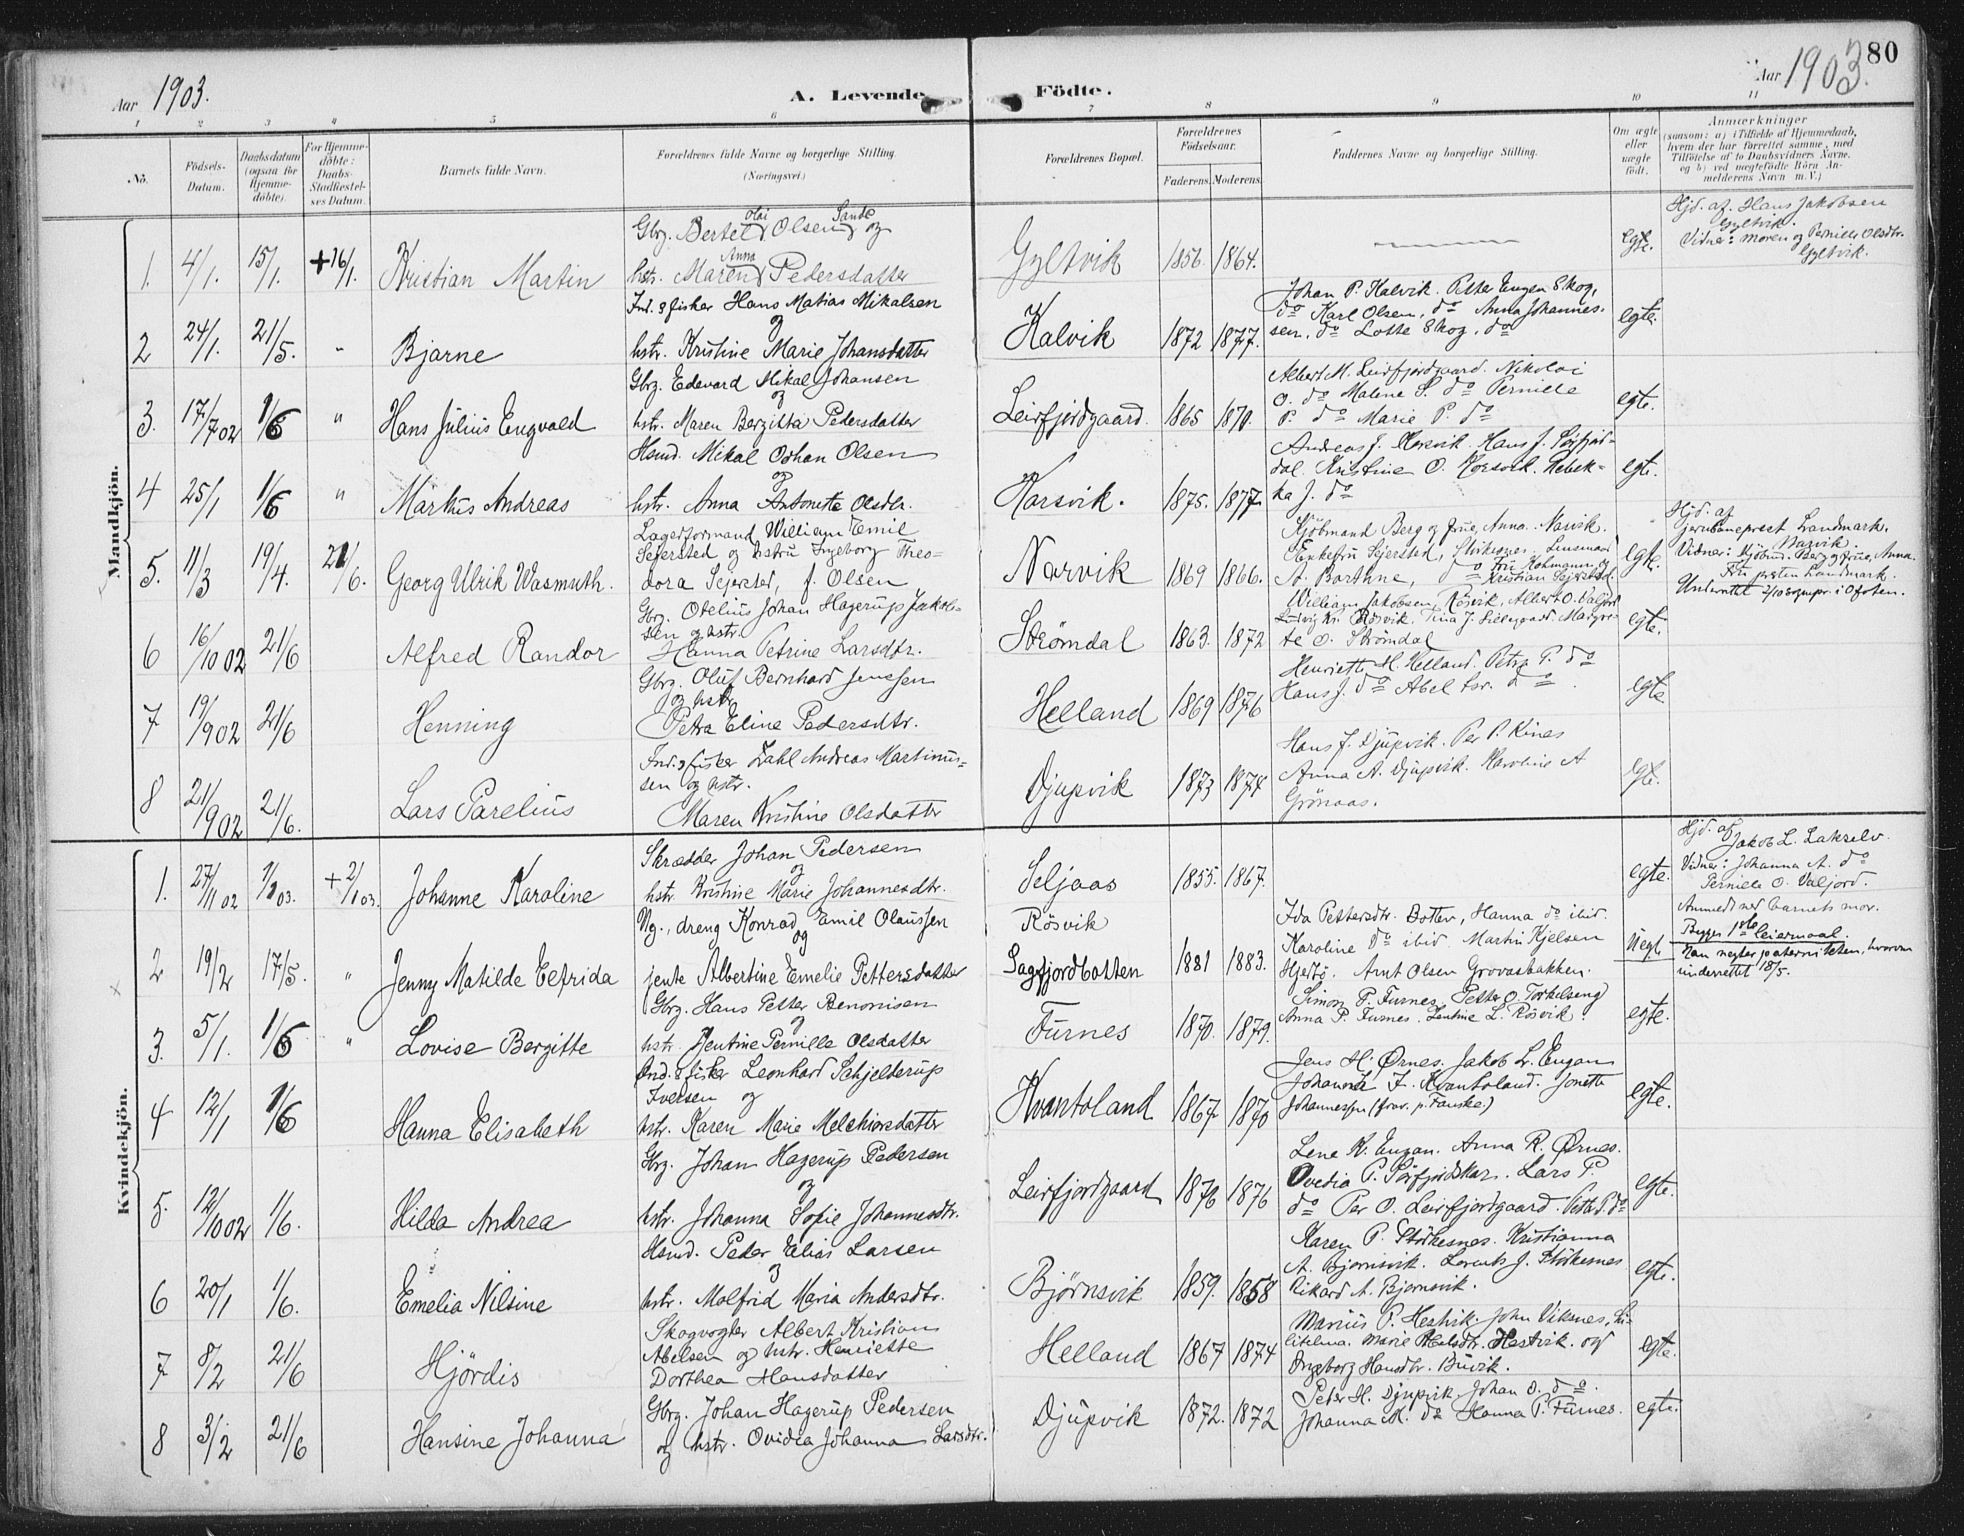 80
Aar 1903.
A. Levende Födte.
Aar 1903.
1 2 3 4 5 6 7 8 9 10 11
No.
Födsels-Datum.
Daabsdatum (ogsaa for Hjemmedöbte).
For Hjemmedöbte: Daabs-Stadfæstelses Datum.
Barnets fulde Navn.
Forældrenes fulde Navne og borgerlige Stilling (Næringsvei.)
Forældrenes Bopæl.
Forældrenes Födselsaar.
Faderens. Moderens.
Faddernes Navne og borgerlige Stilling.
Om ægte eller uægte födt.
Anmærkninger (saasom: a) i Tilfælde af Hjemmedaab, hvem der har forrettet samme, med Tilföielse af to Daabsvidners Navne, og b) ved uægtefödte Börn Anmelderens Navn m. V.)
Mandkjön.
1. 4/1. 15/1. +16/1. Kristian Martin
Gbrg. Bertel Olai Olsen Sande og
hstr. Maren Anna Pedersdatter
Gyltvik 1856. 1864. egte.
Hjd. af Hans Jakobsen
Gyltvik.
Vidner: Moren og Pernille Olsdtr.
Gyltvik.
2 24/1. 21/5. " Bjarne
Ind. & fisker Hans Matias Mikalsen
og
hstr. Kristine Marie Johansdatter
Kalvik 1872 1877.
Johan P. Kalvik. Petter Eugen Skog,
do Karl Olsen, do Anna Johannes-
sen, do Lotte Skog, do
egte.
3. 17/7 02 1/6 " Hans Julius Engvald
Gbrg. Edevard Mikal Johansen
og
hstr. Maren Bergitta Pedersdatter
Leirfjordgaard. 1865 1870.
Albert M. Leirfjordgaard. Nikolai
O. do Malene S. do Pernille
P. do Marie P. do
egte.
4 25/1 1/6 " Markus Andreas
Hsmd. Mikal Johan Olsen
og
hstr. Anna Antonette Olsdtr.
Karsvik. 1875. 1877.
Andreas J. Horsvik. Hans J. Sörfjor-
dal. Kristine O. Horsvik. Rebek-
ka J. do
egte.
5. 11/3 19/4. 21/6. Georg Ulrik Wasmuth.
Lagerformand William Emil
Sejersted og hustru Ingeborg Theo-
dora Sejersted, f. Olsen
Narvik 1869 1866.
Sjöbmand Berg og frue, Anna. Narvik.
Enkefru Sejersted, Störkesnes. Lensmand
A. Barthne, do Fru Rohmann og
Kristian Sejersted.
egte.
Hjd. af
jernbaneprest Landmark.
Narvik.
Vidner: Kjöbmd. Berg og frue, Anna.
Fru presten Landmark.
Underrettet 2/10 sognepr. i Ofoten.
6 16/10 02 21/6 Alfred Randor
Gbr. Otelius Johan Hagerup Jakob-
sen og hstr.
Hanna Petrine Larsdtr.
Strömdal 1863. 1872
William Jakobsen, Rösvik, Albert O. Valjord
Ludvig Kr. Rösvik, Tina J. Lillegaard. Margre-
te O. Strömdal
egte.
7 19/9 02 21/6 Henning
Gbrg. Oluf Bernhard Jenssen
og hstr.
Petra Eline Pedersdtr.
Helland 1869 1876
Henriette H. Helland. Petra P. do
Hans J. do Abel Isr. do.
egte
8 21/9 02 21/6. Lars Parelius
Ind. & fisker Dahl Andreas Martinus-
sen og hstr.
Maren Kristine Olsdatter
Djupvik 1873 1874
Hans J. Djupvik. Per P. Kines
Anna A. Djupvik. Karoline A
Grönaas.
egte.
Kvindekjön.
1. 27/11 02 1/1 03. +2/1 03. Johanne Karoline
Skrædder Johan Pedersen
og
hstr. Kristine Marie Johannesdtr.
Seljaas 1855. 1867. egte.
Hjd. af
Jakob L. Lakselv.
Vidner: Johanna A. do
Pernille O. Valjord.
2 19/2 17/5. " Jenny Matilde Elfrida
Ng., dreng Konrad Emil Olaussen
og
jente Albertine Emelie Pettersdatter
Rösvik
Sagfjordbotten 1881 1883.
Ida Pettersdtr. Botten, Hanna do ibid.
Karoline do ibid. Martin Kjelsen
Hjertö. Arnt Olsen Grovasbakken.
Uegte
Anmeldt ved barnets mor.
Begges 1ste leiermaal.
Han negter paterniteten, hvorom
underrettet 18/5.
3. 5/1. 1/6 " Lovise Bergitte
Gbrg. Hans Petter Benonisen
og
hstr. Jentine Pernille Olsdatter
Furnes 1870. 1879.
Simon P. Furnes, Petter O. Torkelseng
Anna P. Furnes. Jentine L. Rösvik.
egte.
4 12/1 1/6 Hanna Elisabeth
Ind. & fisker Leonhard Schjelderup
Iversen og
hstr. Karen Marie Melchiorsdatter
Kvantoland 1867 1870
Jens H. Ørnes. Jakob L. Engan
Johanna I. Kvantoland. Jonette
Johannessen (frav. p. Fauske)
egte.
5. 12/10 02 1/6. Hilda Andrea
Gbrg. Johan Hagerup Pedersen
og
hstr. Johanna Sofie Johannesdtr.
Leirfjordgaard 1876 1876
Lene K. Engan. Anna R. Ørnes.
Ovedia P. Sörfjordskar. Lars P.
do Per O. Leirfjordgaard. Petter P. do
egte.
6 20/1 1/6. Emelia Nilsine
Hsmd. Peder Elias Larsen
og
hstr. Malfrid Maria Andersdtr.
Bjørnsvik 1859. 1858
Karen P. Störkesnes. Kristianna
A. Bjørnsvik. Lorents J. Störkesnes
Rikard A. Bjørnsvik.
egte.
7 8/2 21/6 Hjördis
Skogvogter Albert Kristian
Abelsen og hstr. Henriette
Dorthea Hansdatter
Helland 1867 1874
Marius P. Hestvik. John Viksnes,
Marie Nilsdtr. Hestvik. og
Ingeborg Hansdtr. Buvik.
egte.
8 3/2 21/6 Hansine Johanna
Gbrg. Johan Hagerup Pedersen
og hstr. Ovidia Johanna Larsdtr.
Djupvik 1872. 1872
Peter H. Djupvik. Johan O. do.
Johanna M. do Hanna P. Furnes.
egte.